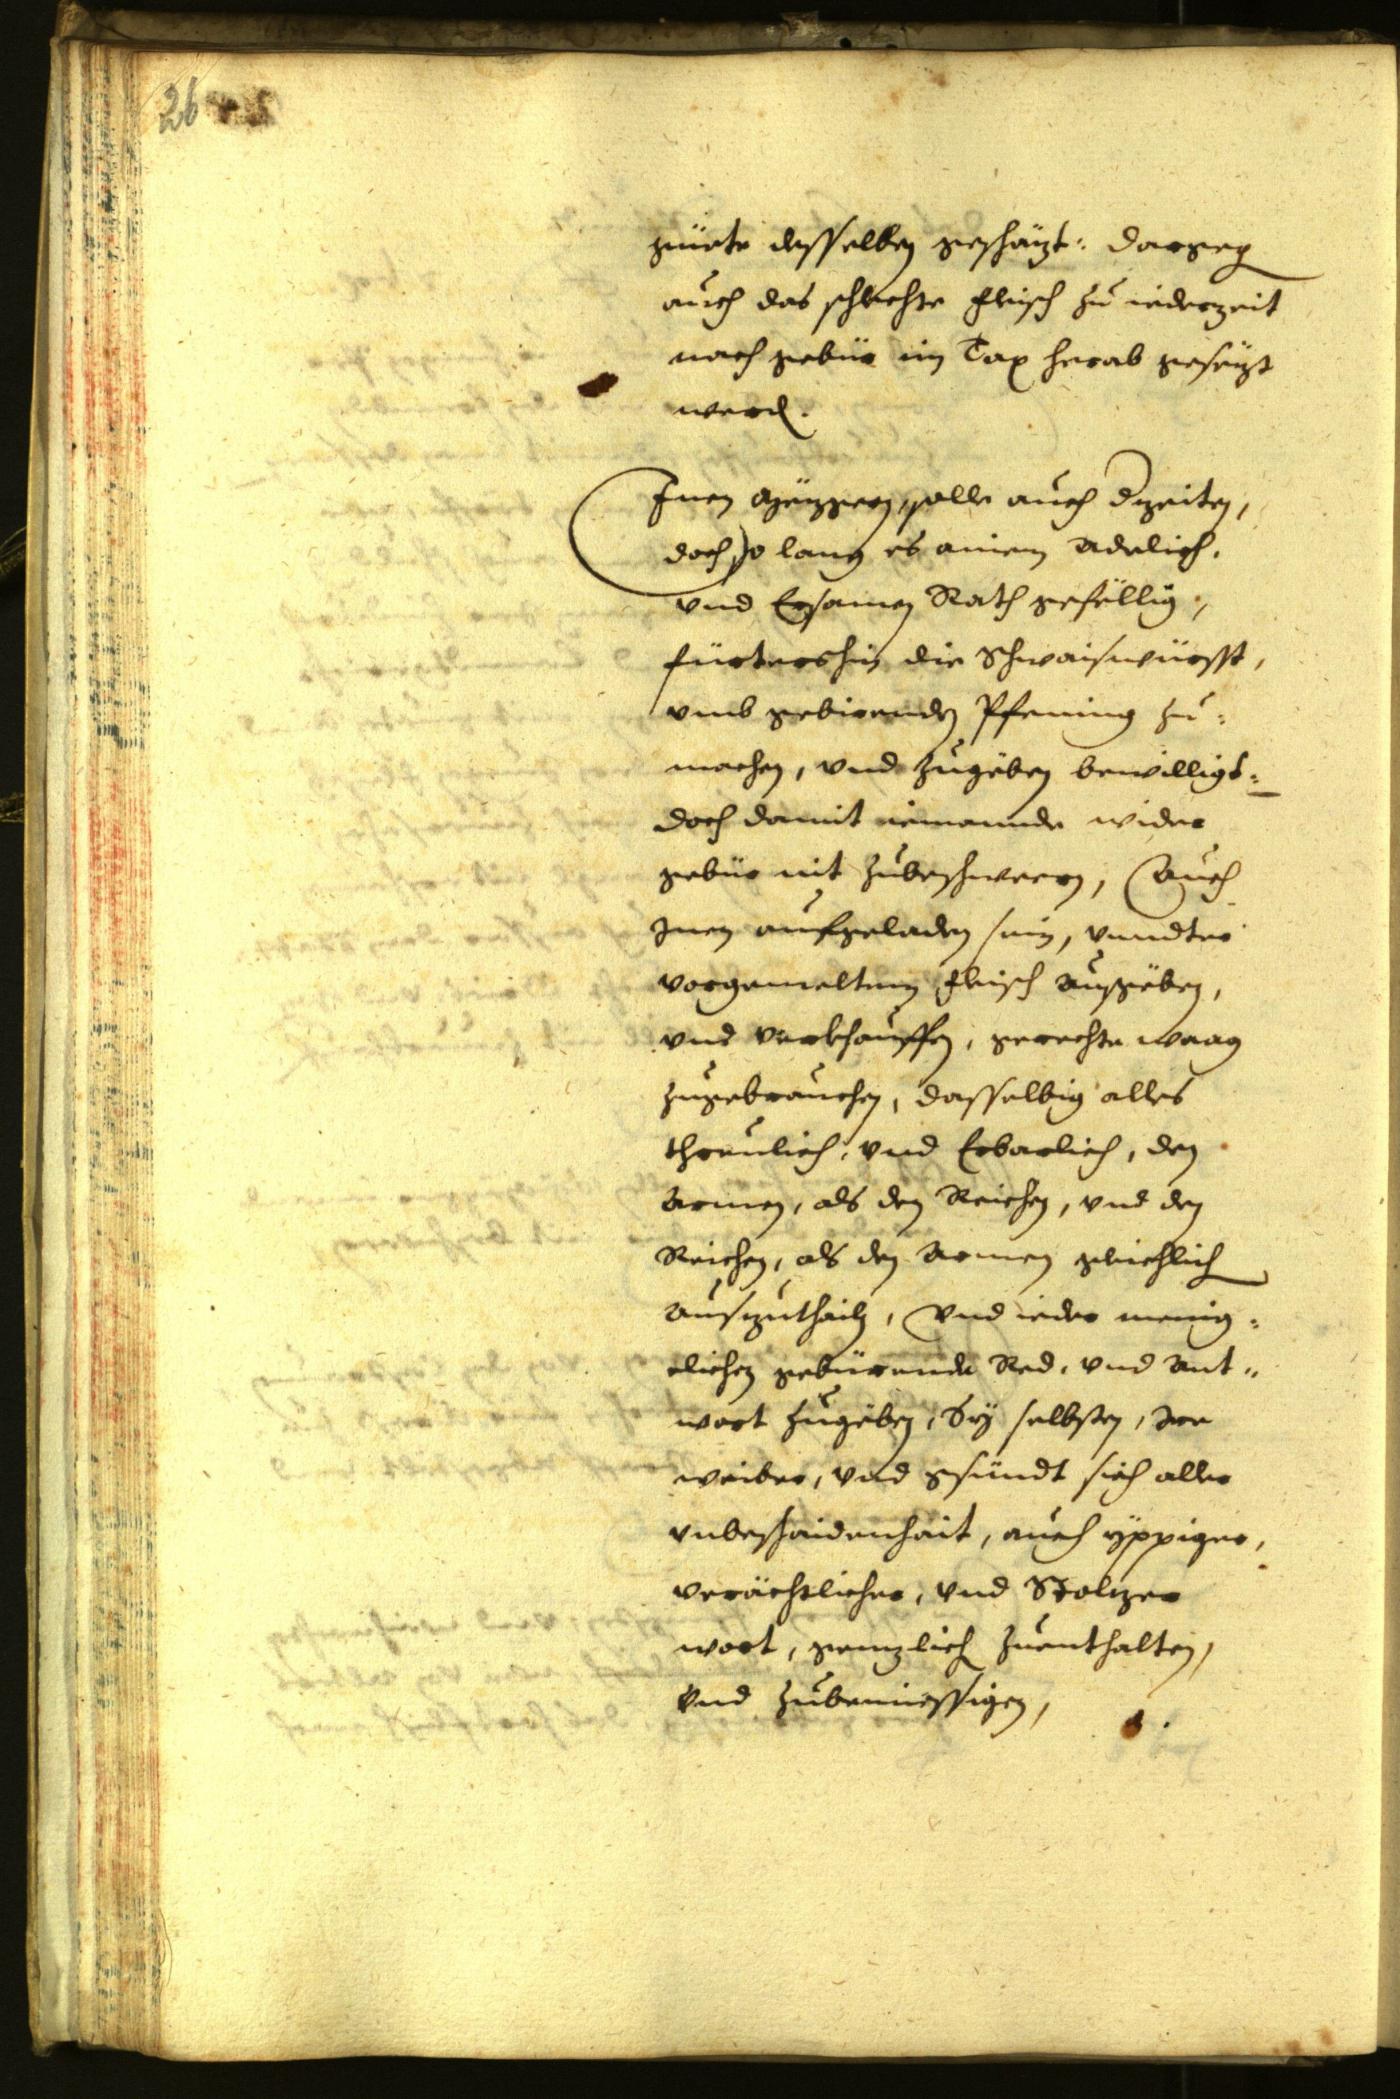 26
güete desselben geschäzt: dargeg
auch das schlechte fleisch zu iederzeit
nach gebür im Tax herab gesezt
werd.
Inen Mezgern, solle auch dzeiten,
doch so lang es ainem Adelich.
vnd Ersamen Rath gefellig,
fürtershin die Schwaiswürsst,
vmb gebirenden Pfening zu:
machen, vnd zugeben bewilligt:
doch damit niemannde wider
gebür nit zubeschwern, Auch
Inen aufgeladen sein, vnndter
vorgemeltem fleisch ausgeben,
vnd verkhauffen, gerechte waag
zugebrauchen, dasselbig alles
threulich, vnd Erbarlich, den
Armen, als den Reichen, vnd den
Reichen, als den Armen gleichlich
auszuthailn, Vnd ieder menig:
elichen gebürende Red, vnd Ant„
wort zugeben, Sy selbsten, Ire
weiber, vnd gsündt sich aller
vnbeschaidenhait, auch yppiger,
verächtlicher, vnd Stoltzer
wort, genzlich zuenthalten,
Vnd zubemiessigen,